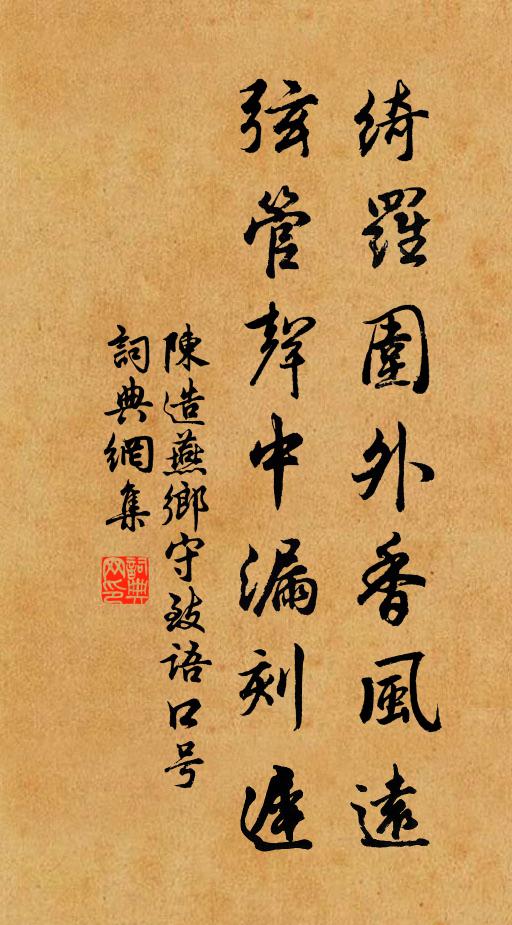 綺羅圍外香風遠
弦管聲中漏刻遲
陳造燕鄉守致語口号
詞典網集
詞典网印